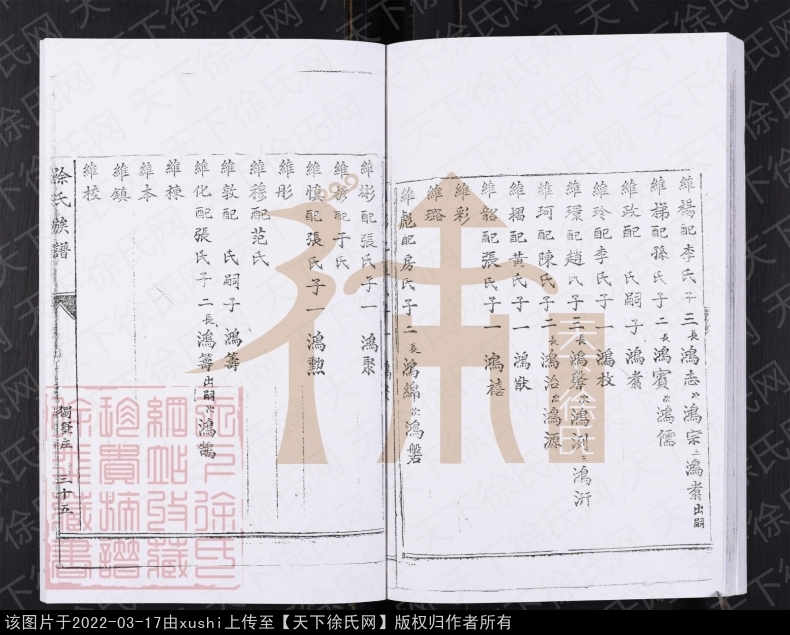 維楊配李氏子三長鴻志次鴻宗三鴻者出嗣
維梯配孫氏子二長鴻賓次鴻儒
維政配 氏嗣子鴻者
維玲配李氏子一鴻枚
維環配趙氏子三長鴻磐次鴻浏三鴻沂
維珂配陳氏子二長鴻治次鴻源
維楬配黃氏子一鴻猷
維韶配張氏子一鴻禧
維彩
維璐
維彪配房氏子二長鴻綿次鴻磐
維彬配張氏子一鴻聚
維 配于氏
維慎配張氏子一鴻勲
維彤
維穆配范氏
維敦配 氏嗣子鴻籌
維化配張氏子二長鴻籌出嗣次鴻鵠
維棟
維本
維鎮
維校
徐氏族譜
獨 庄
三十五
天下徐氏網
天下徐氏网
该图片于2022-03-17由xushi上传至【天下徐氏网】版权归作者所有